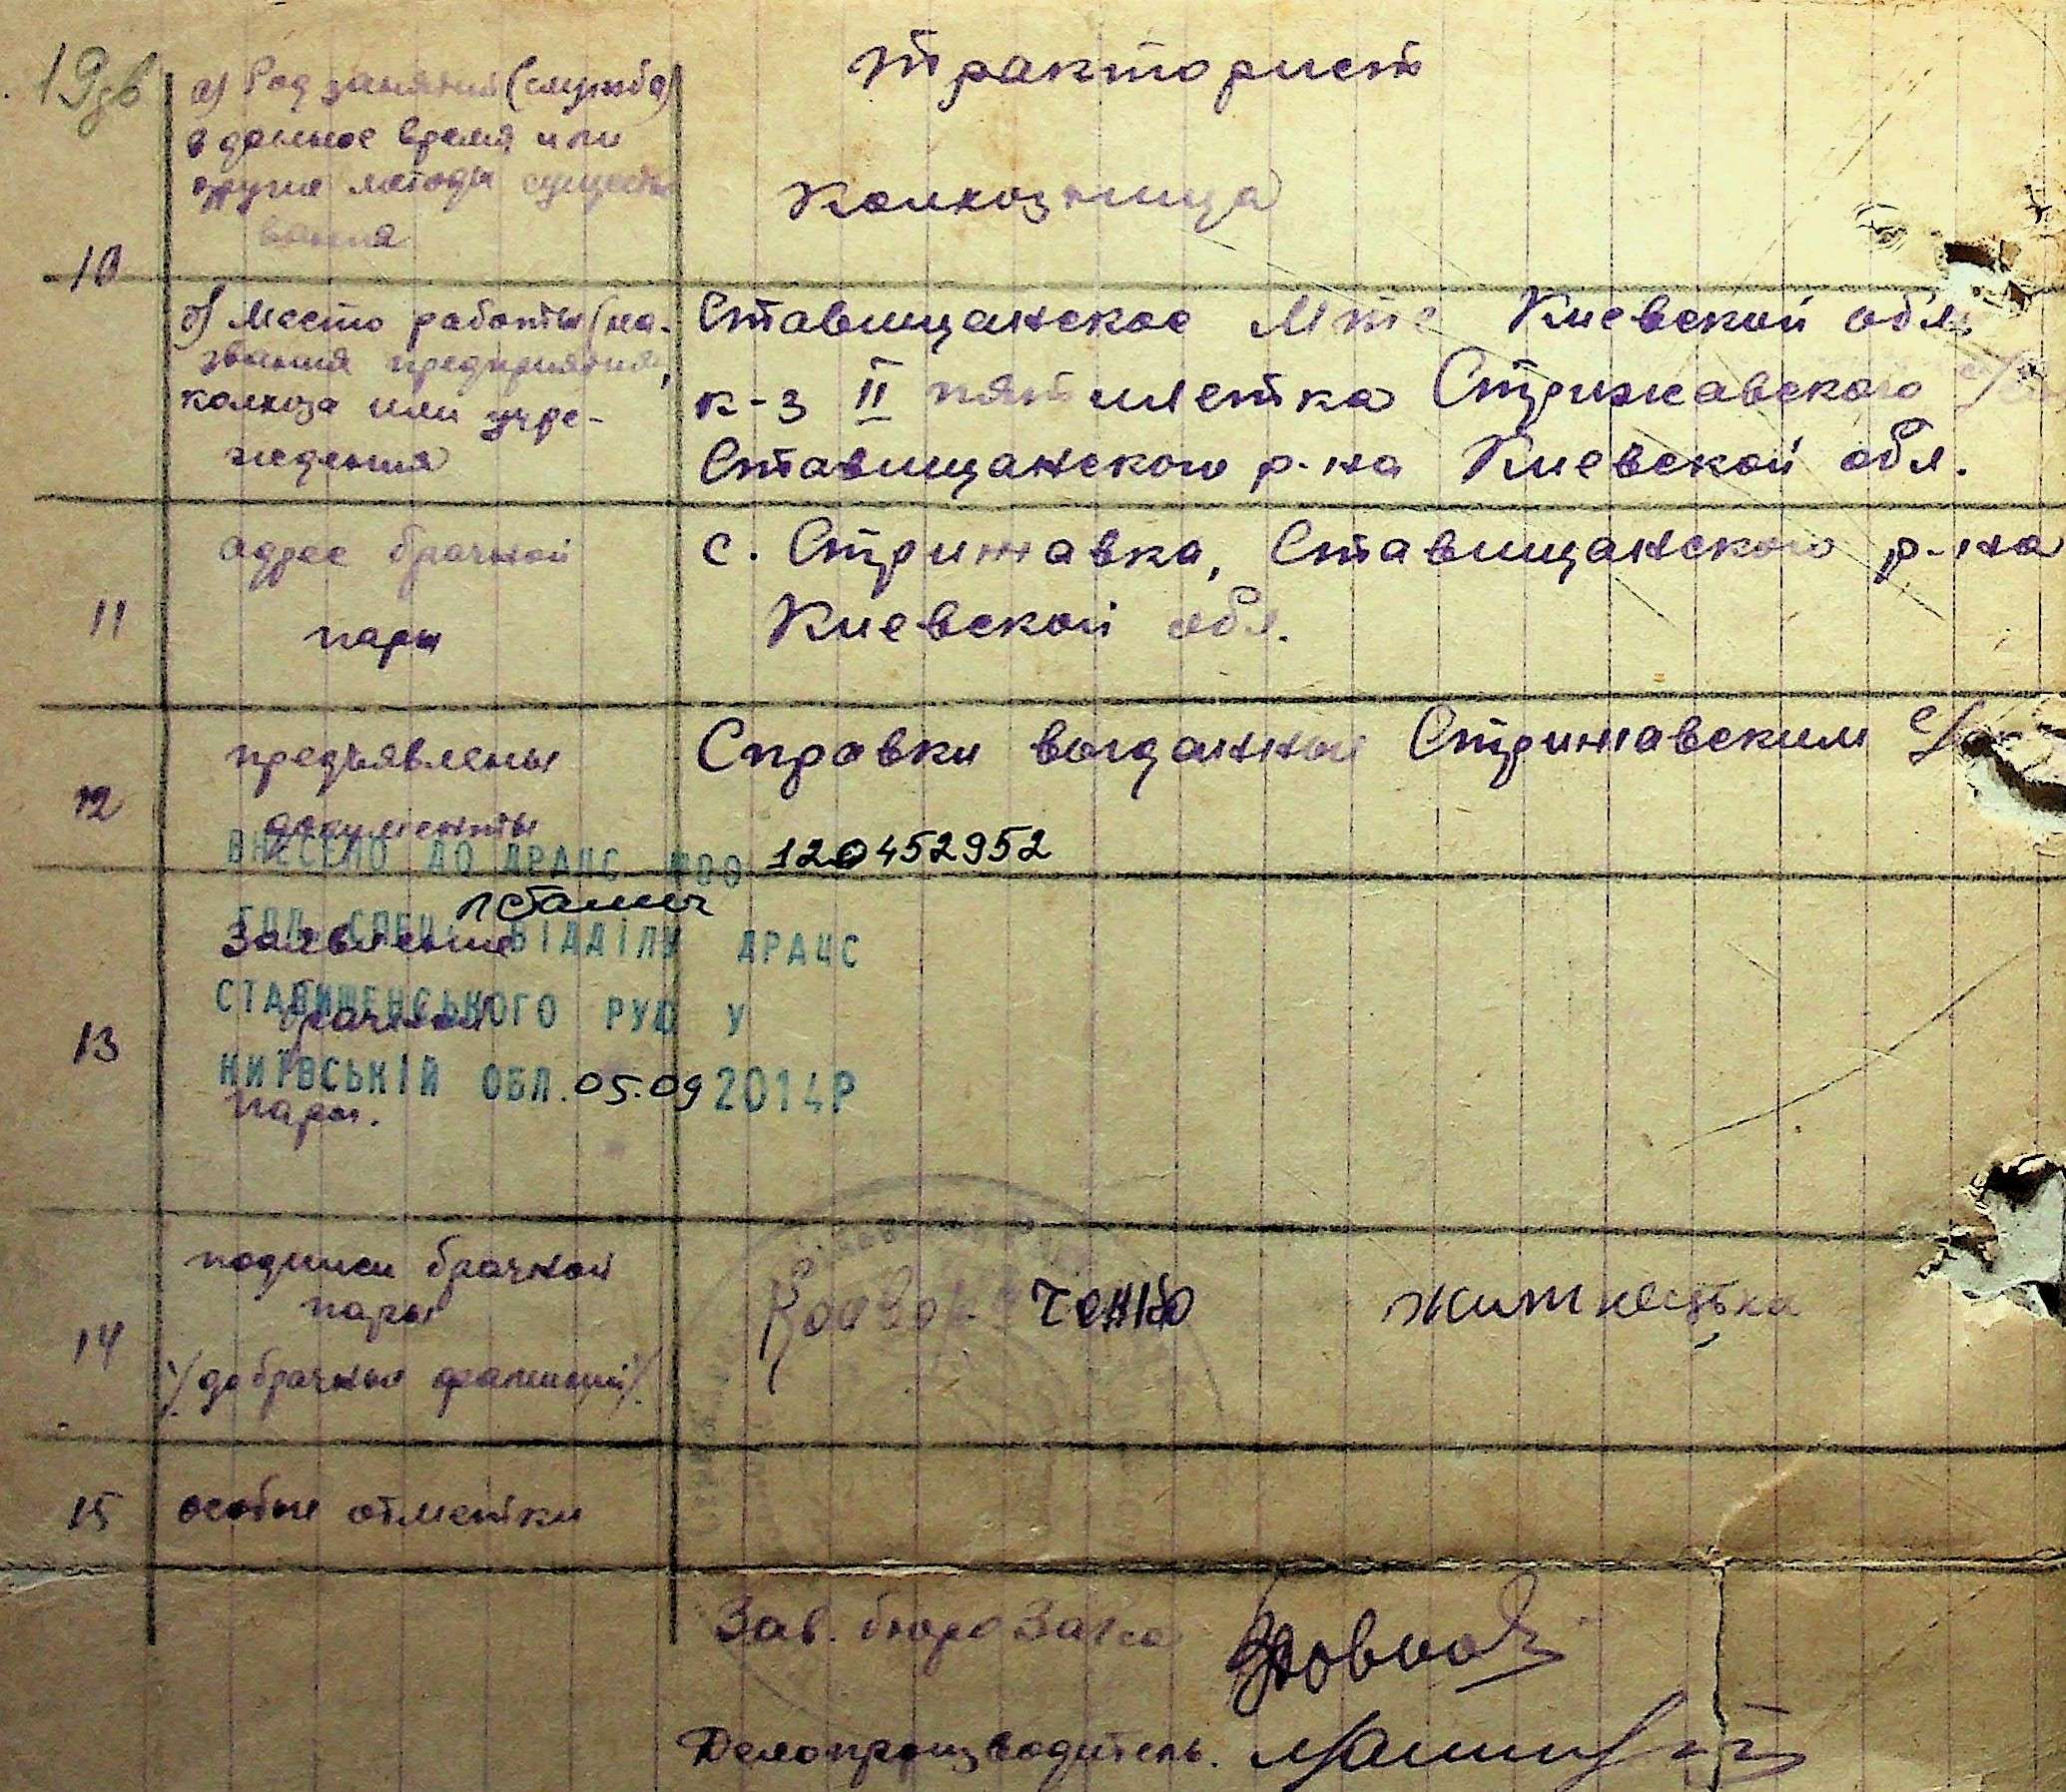 19зв
а) Род занятий (служба)
в данное время или
другие методы существо
вания
Тракторист
Колхозница
10
б) Место работы (на-
звания предприятия,
колхоза или учре-
ждения
Ставищанское Мтс Киевской обл
к-з II пятилетка Стрижавского с/с
Ставищанского р-на Киевской обл.
11
адрес брачной
пары
с. Стрижавка, Ставищанского р-на
Киевской обл.
12
предъявлены
документы
Справки выданные Стрижавским
ВНЕСЕНО ДО ДРАЦС 120452952
ГОЛ. СПЕЦ. ВІДДІЛУ ДРАЦС
СТАВИЩЕНСЬКОГО РУЮ У
КИЇВСЬКІЙ ОБЛ. 05.09 2014Р
13
Заявление
брачной
пары.
14
подписи брачной
пары
/добрачные фамилии/
Житнецька
15
особые отметки
Зав. бюро Загса
Делопроизводитель.